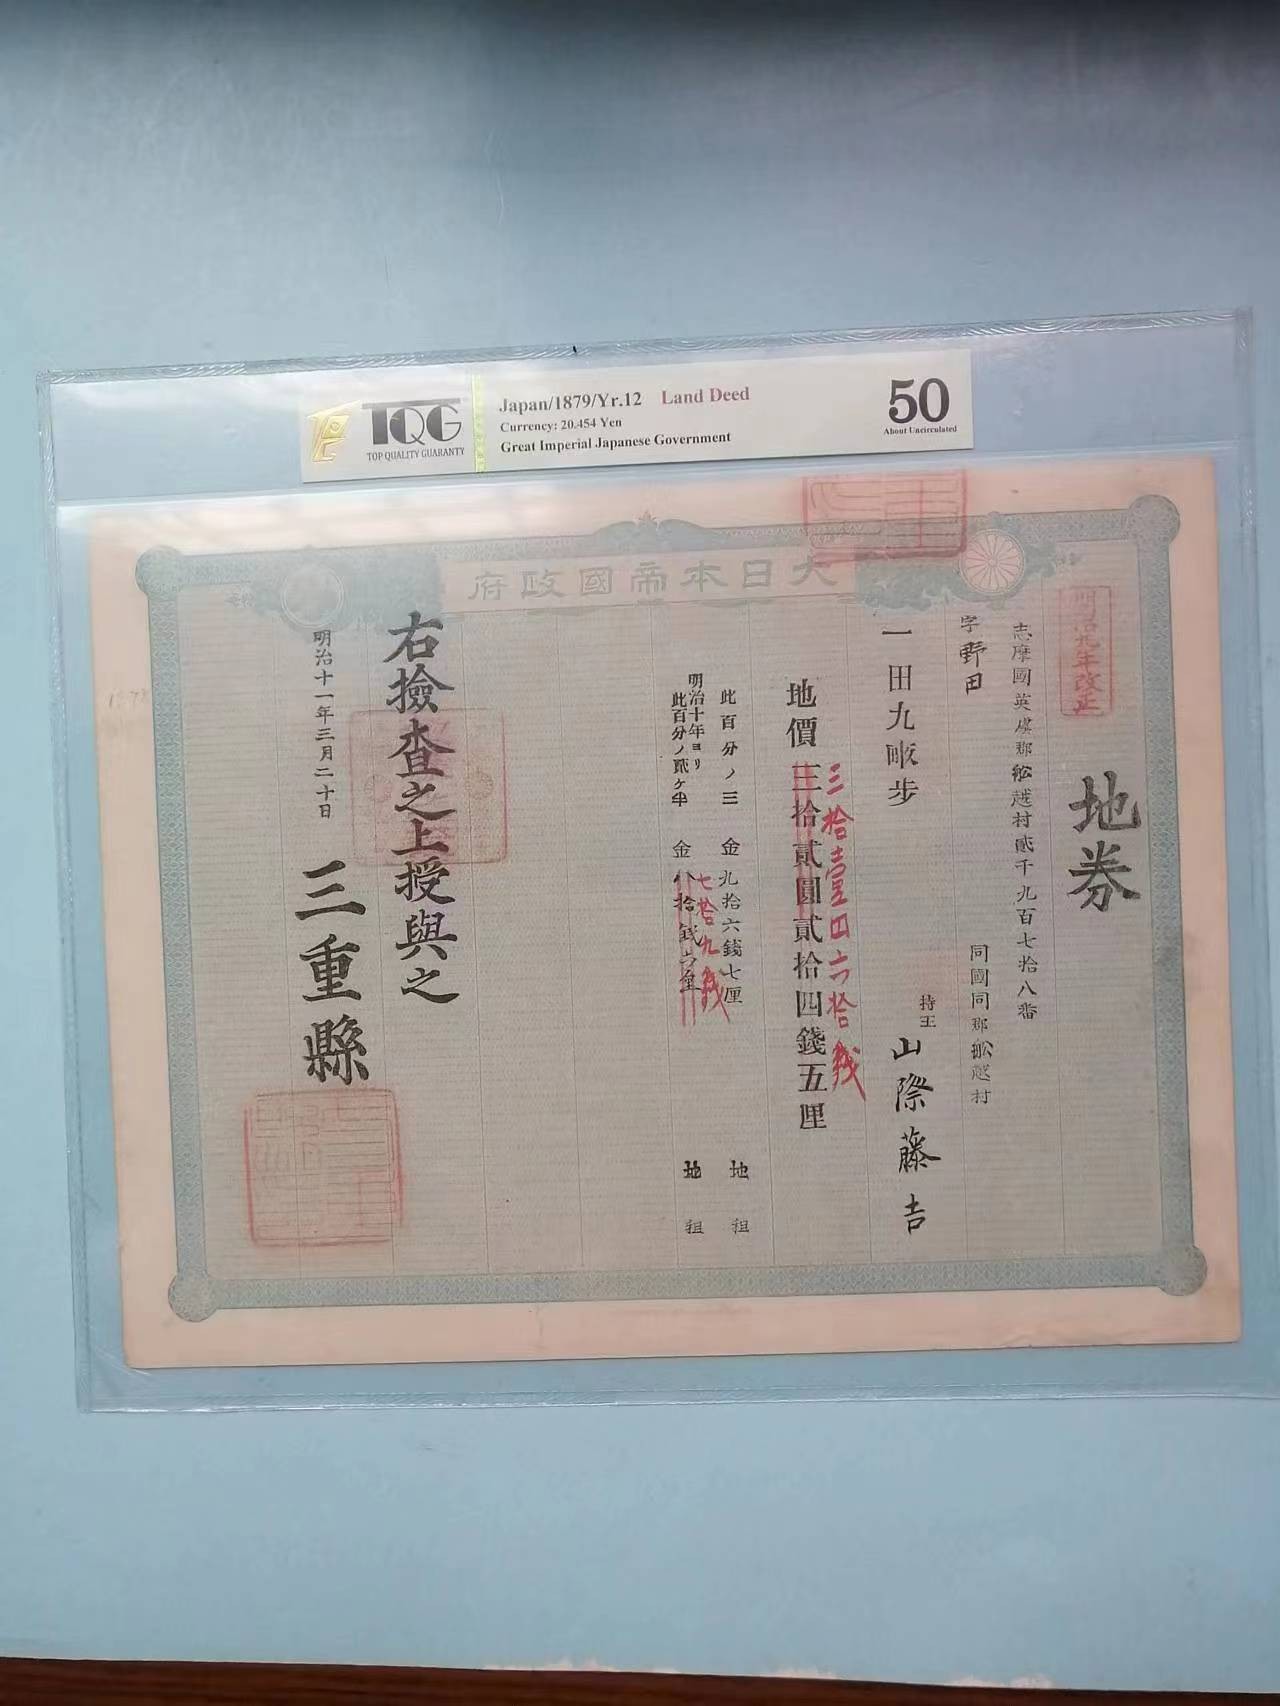 TQG
TOP QUALITY GUARANTY
Japan/1879/Yr.12 Land Deed
Currency: 20.454 Yen
Great Imperial Japanese Government
50
About Uncirculated
大日本帝國政府
明治九年改正
地券
志摩國英虞郡舩越村貳千九百七拾八番
字野田
同國同郡舩越村
一田九畝步
持主 山際藤吉
三拾壹四六拾戋
地價三拾貳圓貳拾四錢五厘
此百分ノ三 金九拾六錢七厘 地租
明治十年ヨリ
此百分ノ貳ケ半 金八拾錢六厘 地租
七拾九戋
右撿査之上授與之
明治十一年三月二十日
三重縣